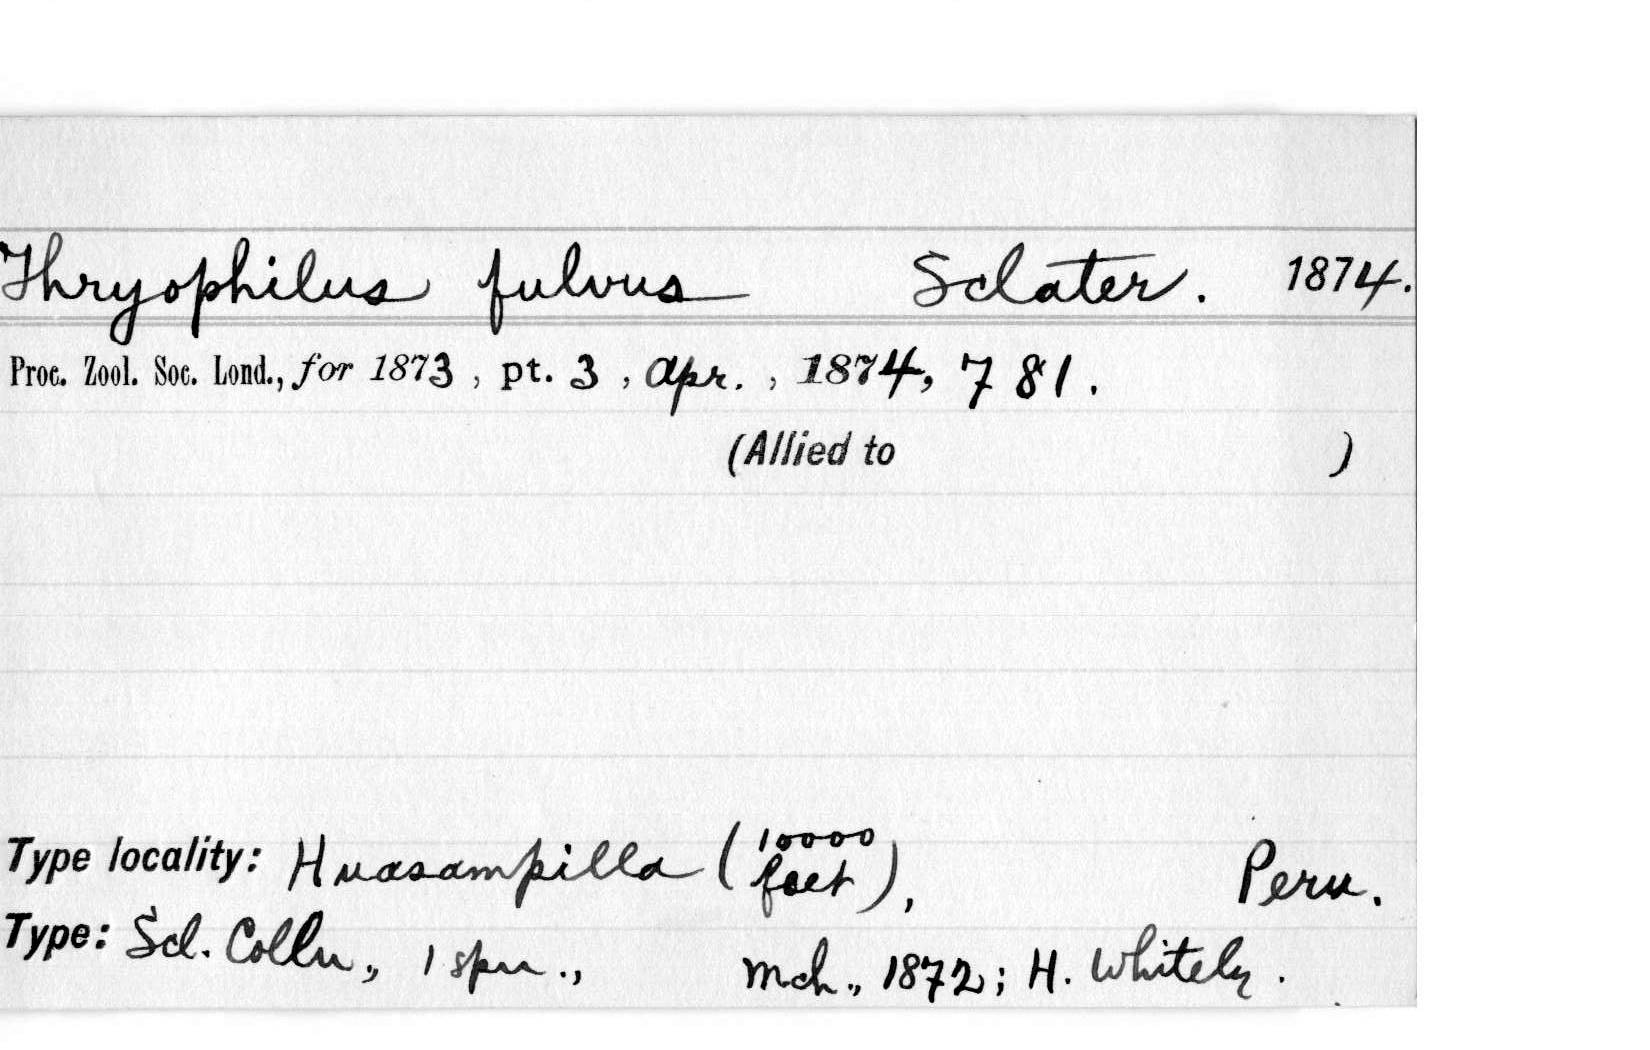 Thryophilus fulvus Sclater. 1874.
Proc. Zool. Soc. Lond., for 1873, pt. 3, Apr., 1874, 781.
(Allied to )
Type locality: Huasampilla (10000 feet), Peru.
Type: Scl. Colln., 1 spn., Mch., 1872; H. Whitely.